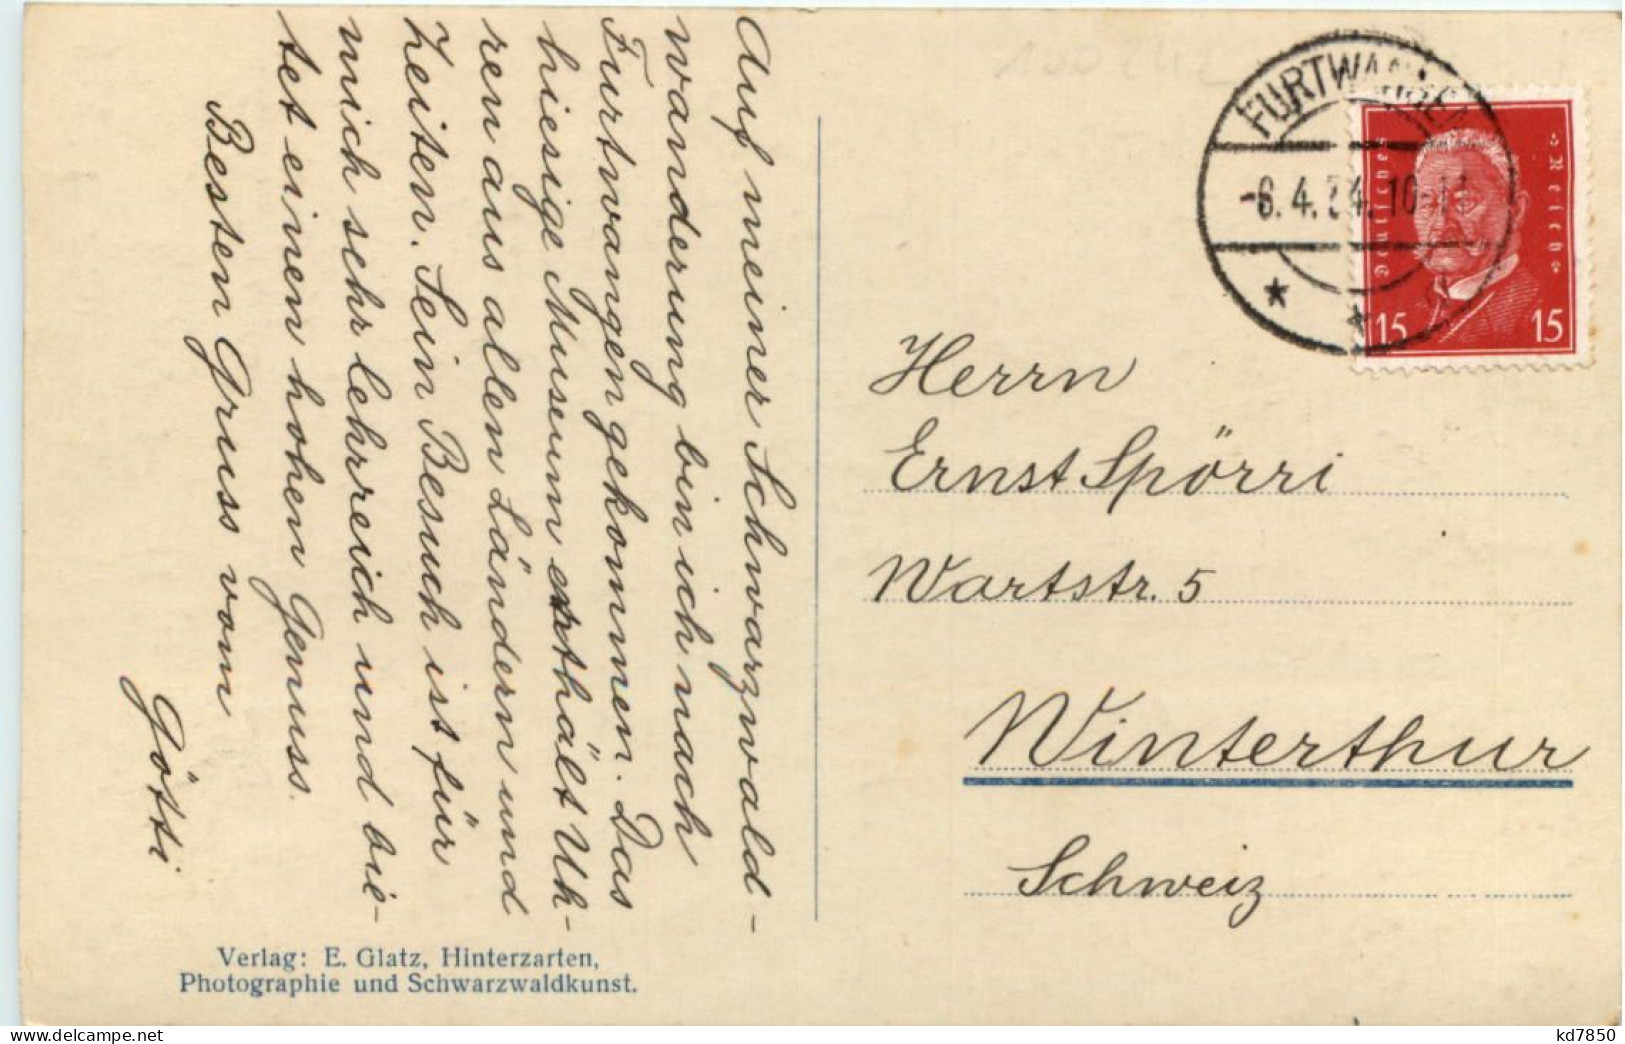 Auf meiner Schwarzwald-
wanderung bin ich nach
Furtwangen gekommen. Das
hiesige Museum enthält Uh-
ren aus allen Ländern und
Zeiten. Sein Besuch ist für
mich sehr lehrreich und bie-
tet einen hohen Genuss.
Besten Gruss vom
Götti
Verlag: E. Glatz, Hinterzarten,
Photographie und Schwarzwaldkunst.
FURTWANGEN
-6.4.
Deutsches
Reich
15
15
Herrn
Ernst Spörri
Wartstr. 5
Winterthur
Schweiz
kd7850